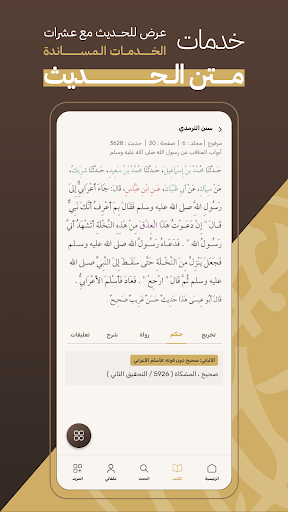 خدمات
عرض للحديث مع عشرات
الخدمات المساندة
متن الحديث
سنن الترمذي
مرفوع | مجلد : 6 | صفحة : 20 | حديث : 3628
أبواب المناقب عن رسول الله صلى الله عليه وسلم
حَدَّثَنَا مُحَمَّدُ بْنُ إِسْمَاعِيلَ، حَدَّثَنَا مُحَمَّدُ بْنُ سَعِيدٍ، حَدَّثَنَا شَرِيكٌ،
عَنْ سِمَاكٍ، عَنْ أَبِي ظَبْيَانَ، عَنِ ابْنِ عَبَّاسٍ، قَالَ: جَاءَ أَعْرَابِيٌّ إِلَى
رَسُولِ اللَّهِ صلى الله عليه وسلم فَقَالَ بِمَ أَعْرِفُ أَنَّكَ نَبِيٌّ
قَالَ " إِنْ دَعَوْتُ هَذَا الْعِذْقَ مِنْ هَذِهِ النَّخْلَةِ أَتَشْهَدُ أَنِّي
رَسُولُ اللَّهِ " . فَدَعَاهُ رَسُولُ اللَّهِ صلى الله عليه وسلم
فَجَعَلَ يَنْزِلُ مِنَ النَّخْلَةِ حَتَّى سَقَطَ إِلَى النَّبِيِّ صلى الله عليه
وسلم ثُمَّ قَالَ " ارْجِعْ " . فَعَادَ فَأَسْلَمَ الأَعْرَابِيُّ .
قَالَ أَبُو عِيسَى هَذَا حَدِيثٌ حَسَنٌ غَرِيبٌ صَحِيحٌ.
تخريج حكم رواة شرح تعليقات
الألباني: صحيح دون قوله: فأسلم الأعرابي
صحيح ، المشكاة ( 5926 / التحقيق الثاني )
الرئيسية الكتب البحث ملفاتي المزيد